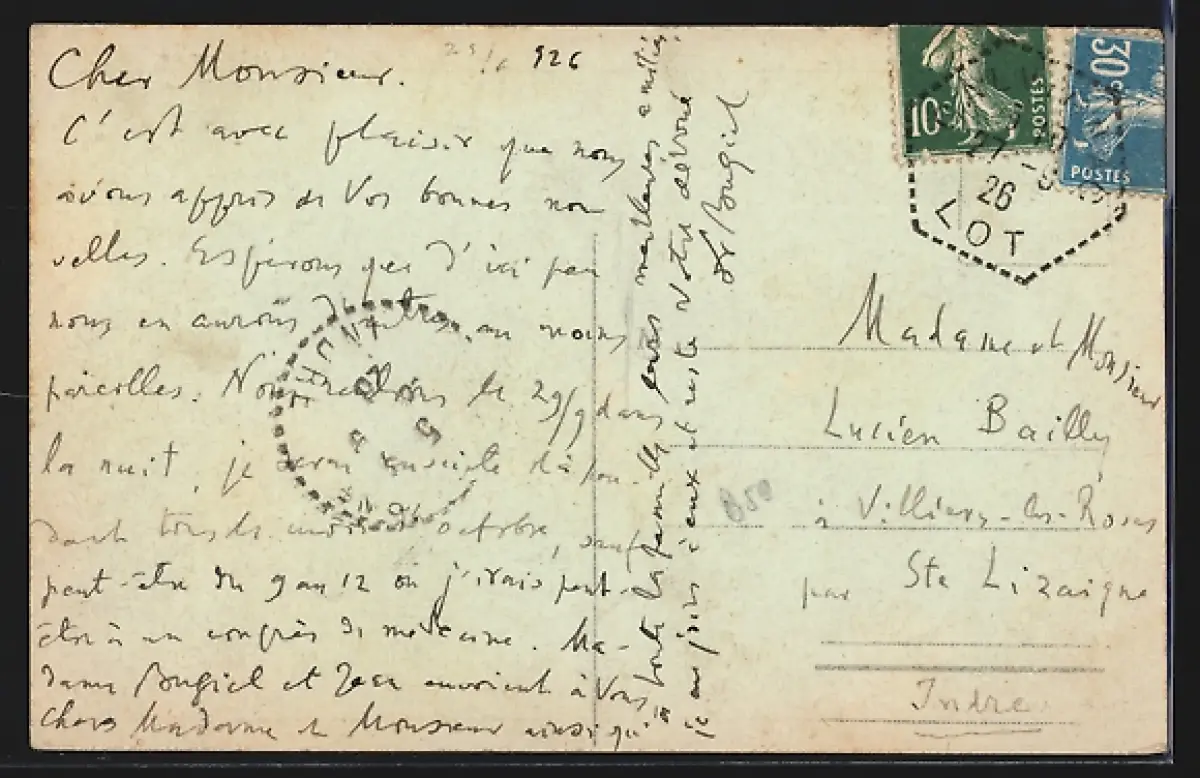 926
Cher Monsieur.
C'est avec plaisir que nous
avons appris de Vos bonnes nou
velles. Espérons que d'ici peu
nous en aurons d'autres, au moins
pareilles. Nous le 29/9 dans
la nuit, je serai ensuite là pen-
dant tout le mois d'octobre, sauf
peut-être du 9 au 12 où j'irais peut-
être à un congrès de médecine. Ma-
dame Bugiel et Jean envoient à Vous
chers Madame et Monsieur ainsi qu'
à toute la famille leurs meilleures amitiés
je me joins à eux et reste Votre dévoué
Dr Bugiel
10c POSTES
30c POSTES
26
LOT
Madame et Monsieur
Lucien Bailly
à Villiers-les-Roses
par Ste Lizaigne
Indre
B50